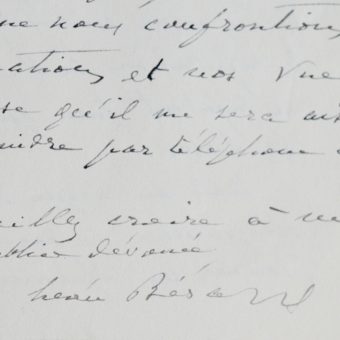 ne nous confrontions
ations et nos vue
se qu'il me sera ais
indre par téléphone
illez croire à m
dévoué
Bérard